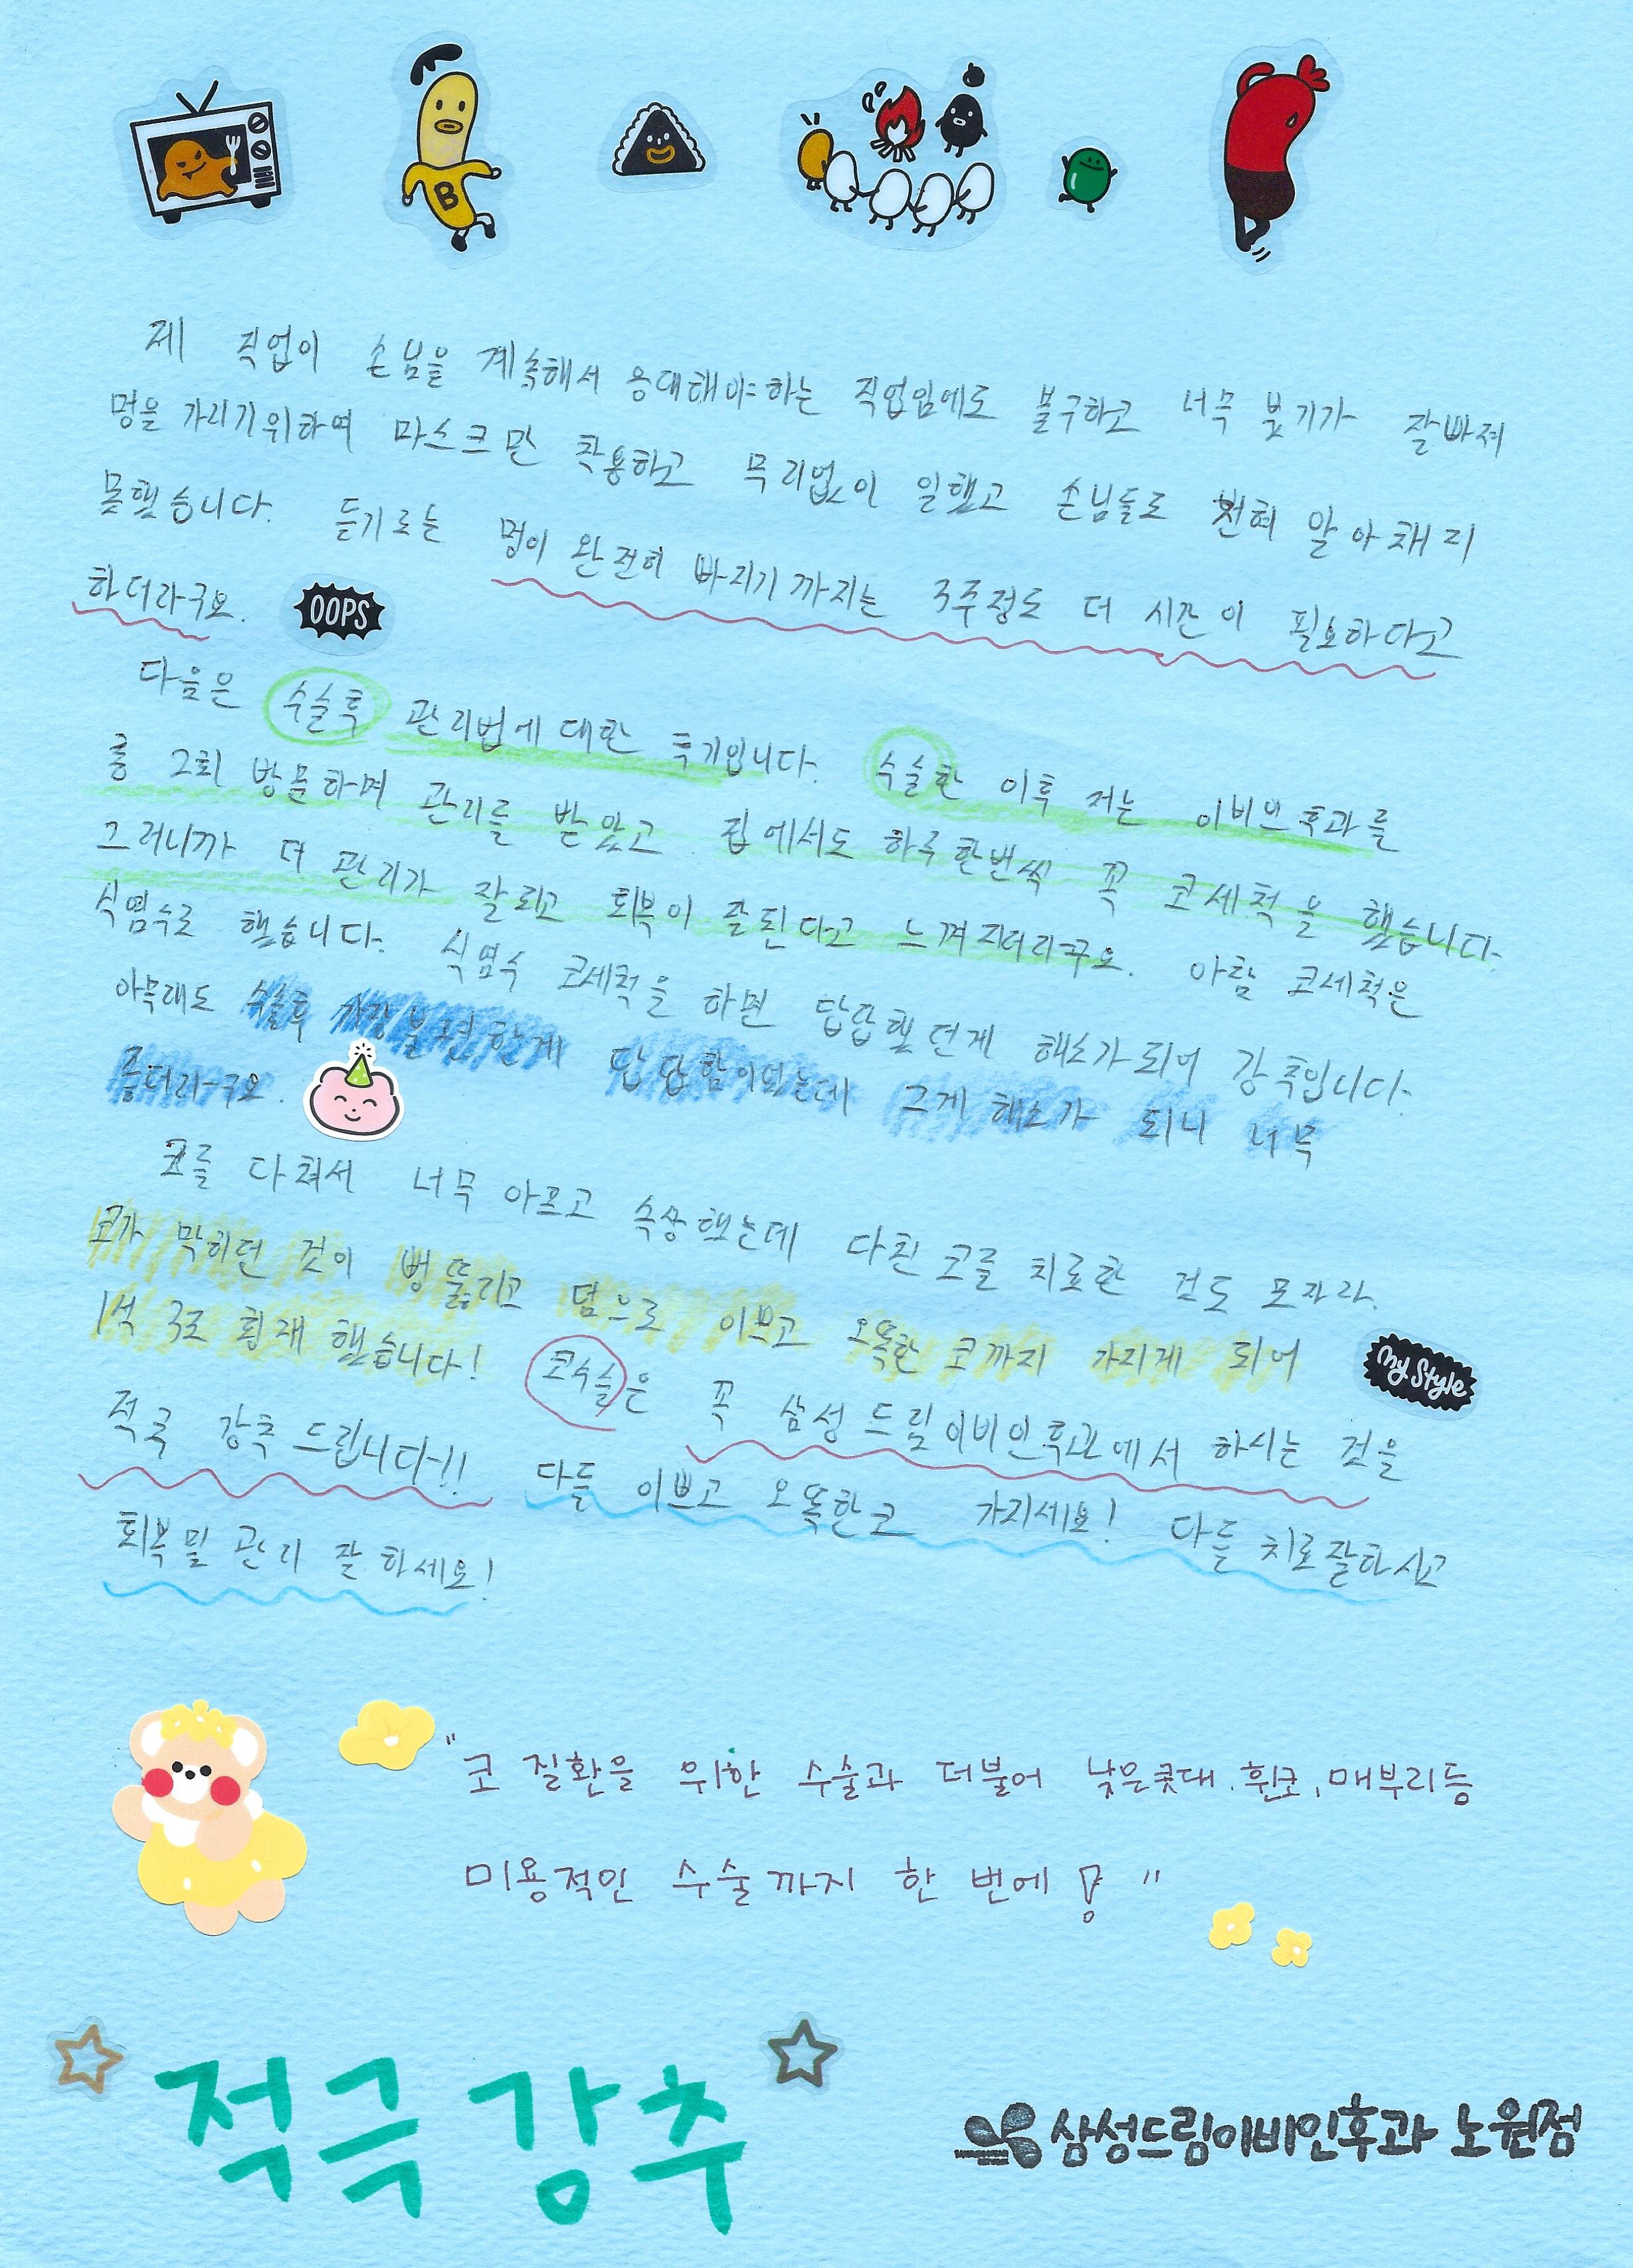 B
제 직업이 손님을 계속해서 응대해야하는 직업임에도 불구하고 너무 붓기가 잘빠져
멍을 가리기위하여 마스크만 착용하고 무리없이 일했고 손님들도 전혀 알아채리
못했습니다. 듣기로는 멍이 완전히 빠지기까지는 3주정도 더 시간이 필요하다고
하더라구요. OOPS
다음은 수술후 관리법에 대한 후기입니다. 수술한 이후 저는 이비인후과를
총 2회 방문하며 관리를 받았고 집에서도 하루한번씩 꼭 코세척을 했습니다.
그러니까 더 관리가 잘되고 회복이 잘된다고 느껴지더라구요. 아참 코세척은
식염수로 했습니다. 식염수 코세척을 하면 답답했던게 해소가되어 강추입니다.
아무래도 수술후 가장 불편한게 답답함이였는데 그게 해소가 되니 너무
좋더라구요.
코를 다쳐서 너무 아프고 속상했는데 다친 코를 치료한 것도 모자라.
코가 막히던 것이 뻥 뚫리고 덤으로 이쁘고 오똑한 코까지 가지게 되어
1석 3조 횡재 했습니다! 코수술은 꼭 삼성드림이비인후과에서 하시는 것을 My Style
적극 강추 드립니다!! 다들 이쁘고 오똑한코 가지세요! 다들 치료잘하시고
회복및 관리 잘 하세요!
"코 질환을 위한 수술과 더불어 낮은콧대, 휜코, 매부리등
미용적인 수술까지 한 번에!"
적극 강추
삼성드림이비인후과 노원점